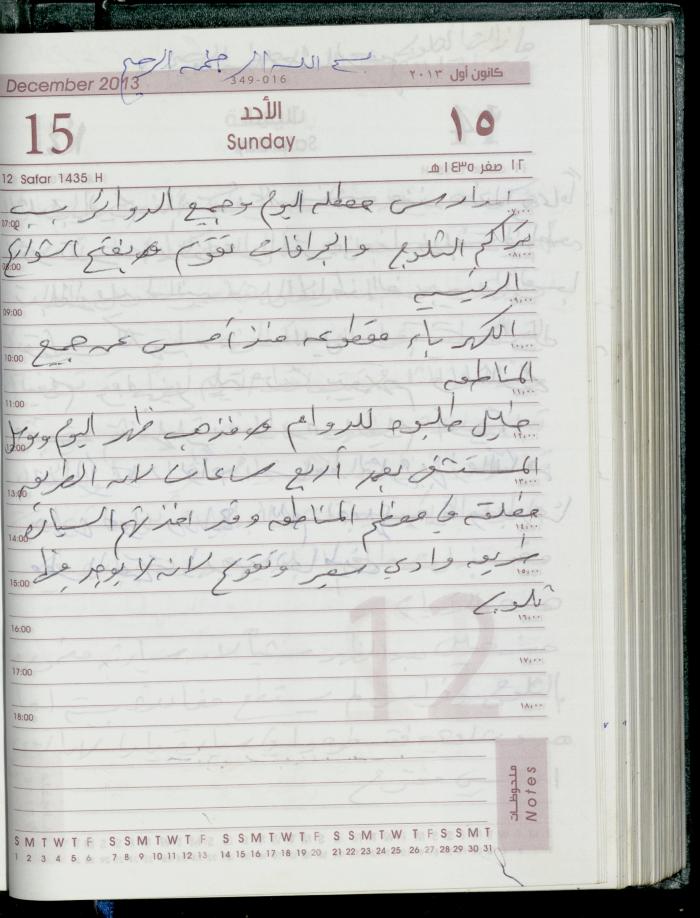 بسم الله الرحمن الرحيم
December 2013 349-016 كانون أول ٢٠١٣
15 الأحد ١٥
Sunday
12 Safar 1435 H ١٢ صفر ١٤٣٥ هـ
المدارس معطله اليوم وجميع الدوائر بسبب
07:00 ٧:٠٠
تراكم الثلوج والجرافات تقوم بفتح الشوارع
08:00 ٨:٠٠
الرئيسيه
09:00 ٩:٠٠
الكهرباء مقطوعه منذ أمس عن جميع
10:00 ١٠:٠٠
المناطق
11:00 ١١:٠٠
خليل طلبوه للدوام فذهب ظهر اليوم
12:00 ١٢:٠٠
المستشفى بعد أربع ساعات لان الطريق
13:00 ١٣:٠٠
مغلقه في معظم المناطق وقد اخذتهم السيارة
14:00 ١٤:٠٠
طريق وادي سير لانه لا يوجد
15:00 ١٥:٠٠
ثلوج
16:00 ١٦:٠٠
17:00 ١٧:٠٠
18:00 ١٨:٠٠
12
ملحوظات
Notes
S M T W T F S S M T W T F S S M T W T F S S M T W T F S S M T
1 2 3 4 5 6 7 8 9 10 11 12 13 14 15 16 17 18 19 20 21 22 23 24 25 26 27 28 29 30 31